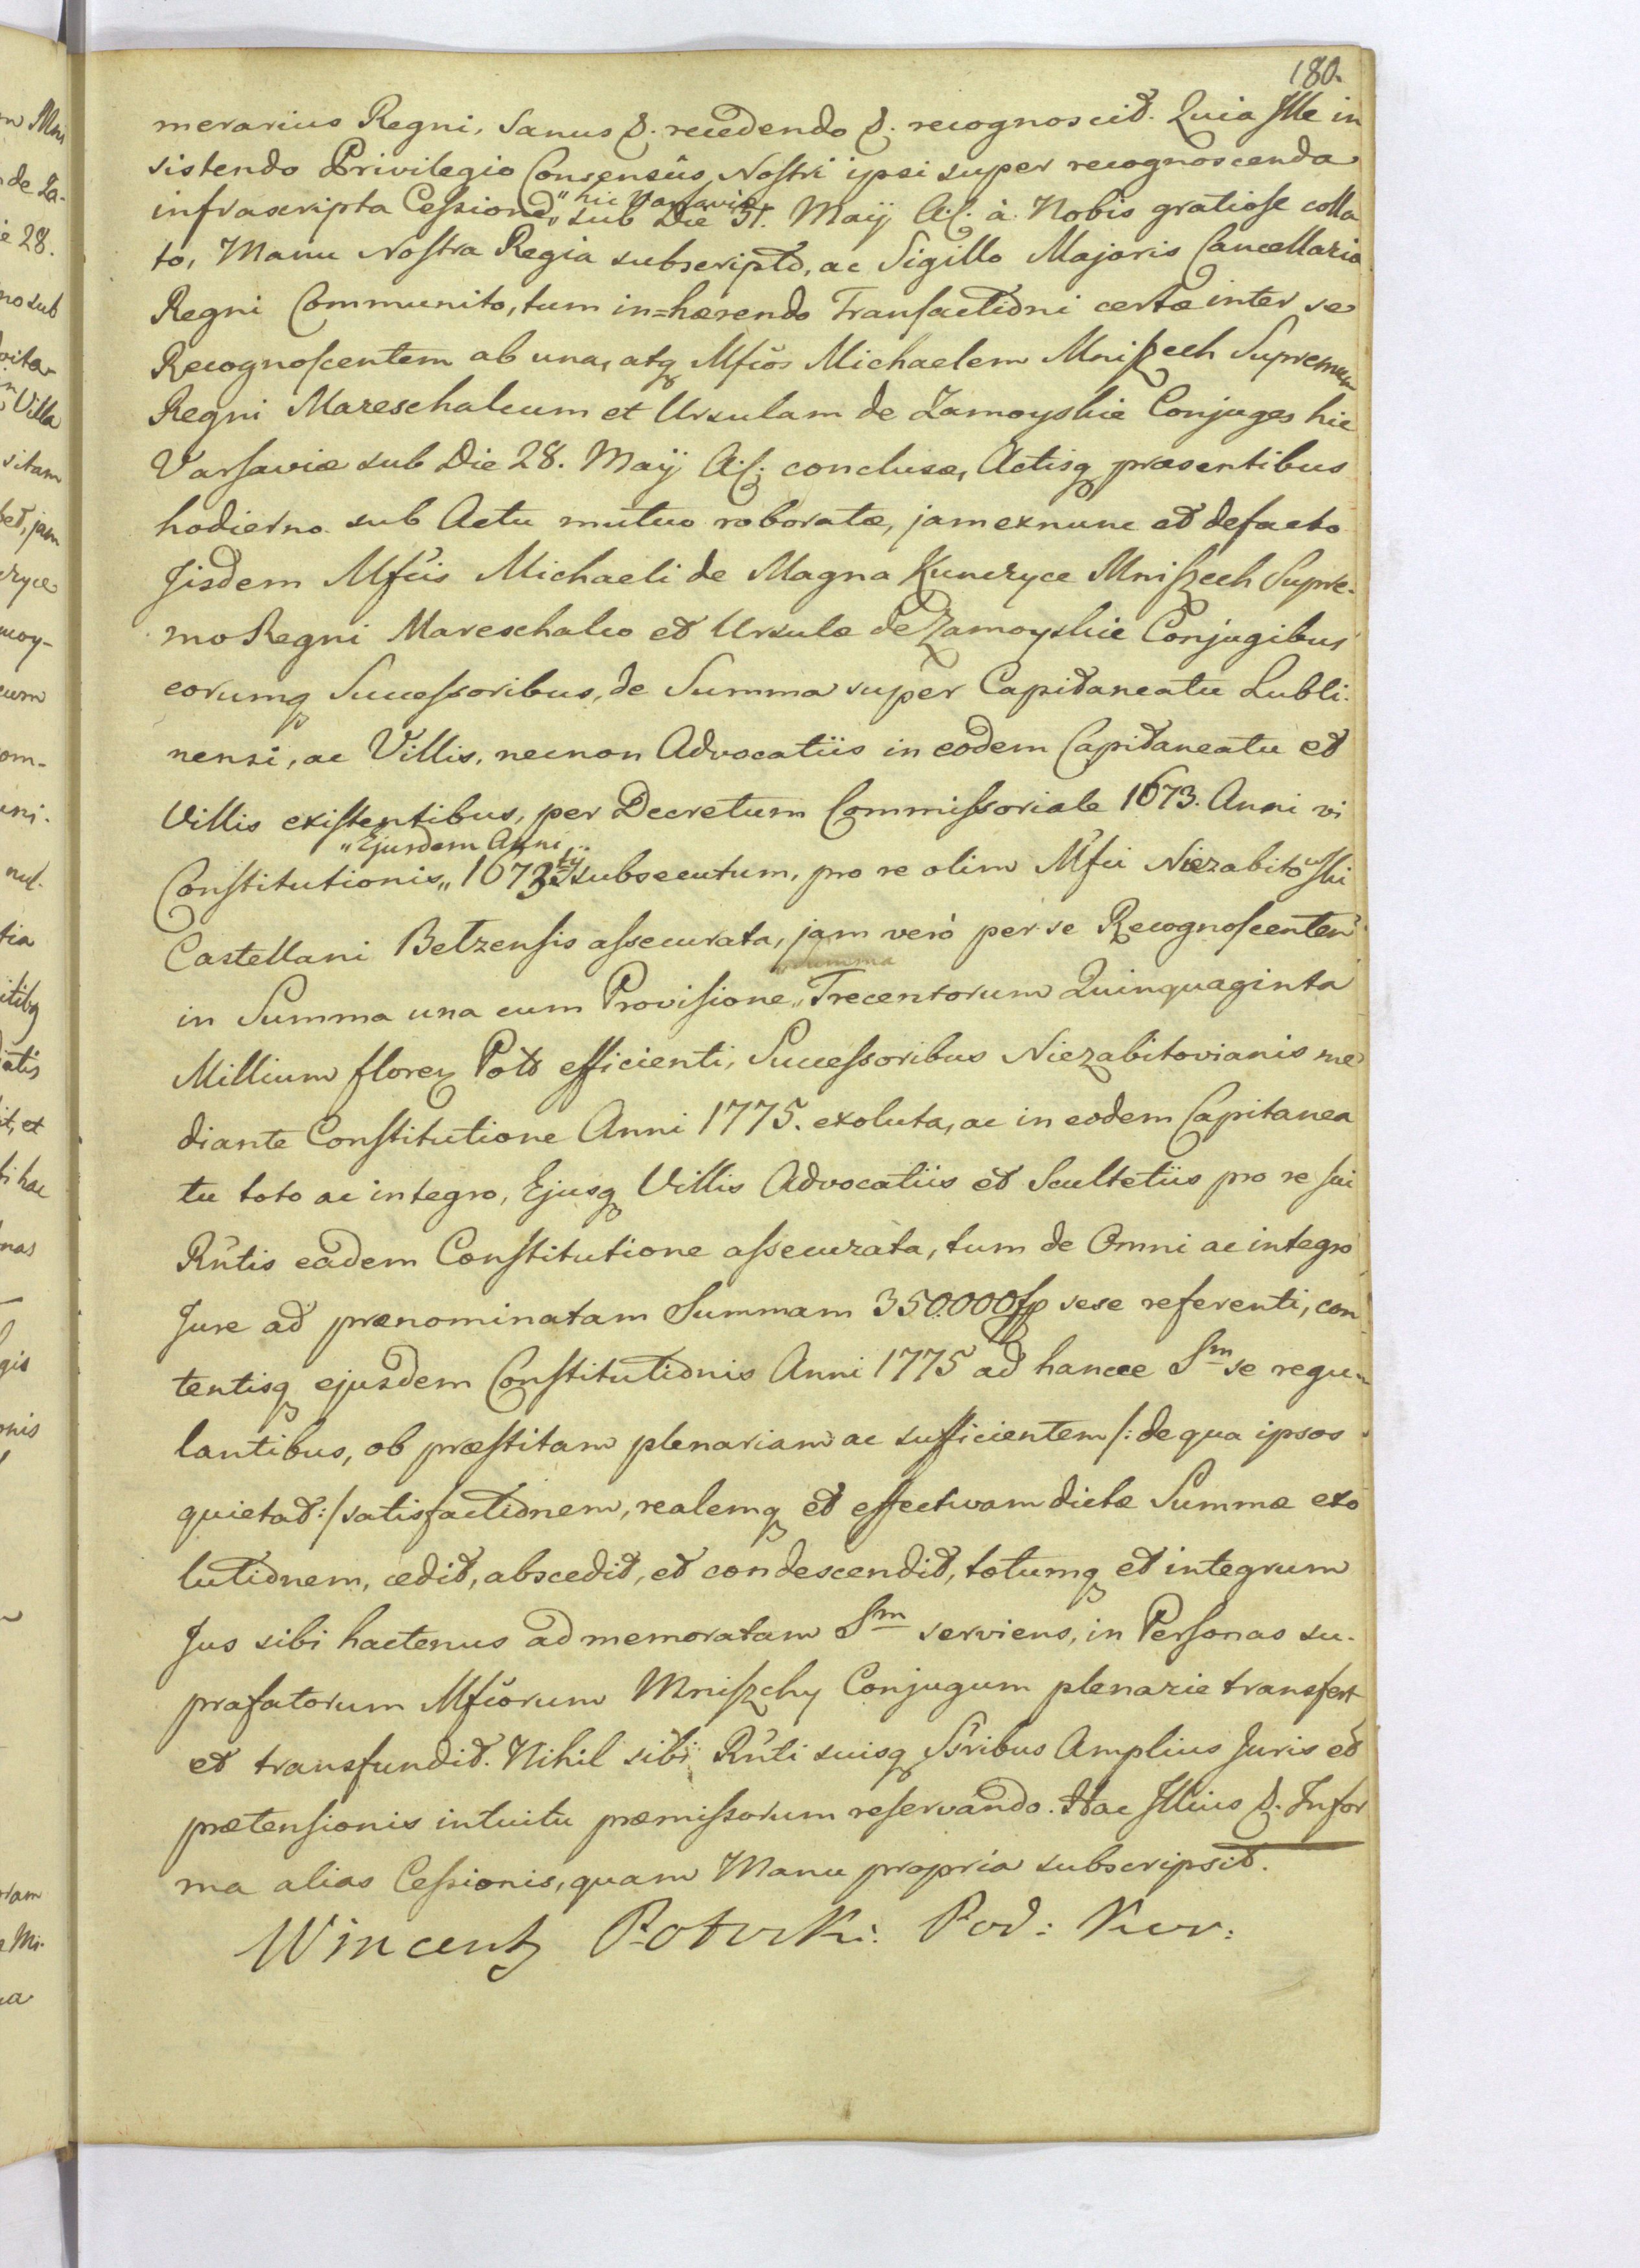 180.
merarius Regni, Sanus &. recedendo &. recognoscit. Quia Ille in
sistendo Privilegio Consensûs Nostri ipsi super recognoscenda
infrascripta Cessione, „hic Varsaviæ sub Die 31. Maij A. C. à Nobis gratiose colla
to, Manu Nostra Regia subscripto, ac Sigillo Majoris Cancellariæ
Regni Communito, tum in=hærendo Transactioni certæ inter se
Recognoscentem ab una, atq Mfcos Michaelem Mniszech Supremum
Regni Mareschalcum et Ursulam de Zamoyskie Conjuges hic
Varsaviæ sub Die 28. Maij A. C. conclusæ, Actisq præsentibus
hodierno sub Actu mutuo roboratæ, jam exnunc et defacto
Jisdem Mfcis Michaeli de Magna Kunczyce Mniszech Supre-
mo Regni Mareschalco et Ursulæ de Zamoyskie Conjugibus
eorumq Successoribus, de Summa super Capitaneatu Lubli-
nensi, ac Villis, necnon Advocatiis in eodem Capitaneatu et
Villis existentibus, per Decretum Commissoriale 1673. Anni vi
Constitutionis „Ejusdem Anni„ 1673tij subsecutum, pro re olim Mfci Niezabitowski
Castellani Betzensis assecurata, jam verò per se Recognoscentem
in Summa una cum Provisione „Trecentorum Quinquaginta
Millium floren Polo efficienti, Successoribus Niezabitovianis me
diante Constitutione Anni 1775. exoluta, ac in eodem Capitanea
tu toto ac integro, Ejusq Villis Advocatiis et Scultetiis pro re sui
Rntis eadem Constitutione assecurata, tum de Omni ac integro
Jure ad prænominatam Summam 350000 fp sese referenti, con
tentisq ejusdem Constitutionis Anni 1775 ad hancce Sm se regu-
lantibus, ob præstitam plenariam ac sufficientem /: de qua ipsos
quietat :/ satisfactionem, realemq et effectivam dictæ Summæ exo
lutionem, cedit, abscedit, et condescendit, totumq et integrum
Jus sibi hactenus ad memoratam Sm serviens, in Personas su-
prafatorum Mfcorum Mniszchy Conjugum plenarie transfert
et transfundit. Nihil sibi Rnti suisq Ssribus Amplius Juris et
prætensionis intuitu præmissorum reservando. Hac Illius &. Infor
ma alias Cessionis, quam Manu propria subscripsit.
Wincenty Potocki. Pod: Kor: